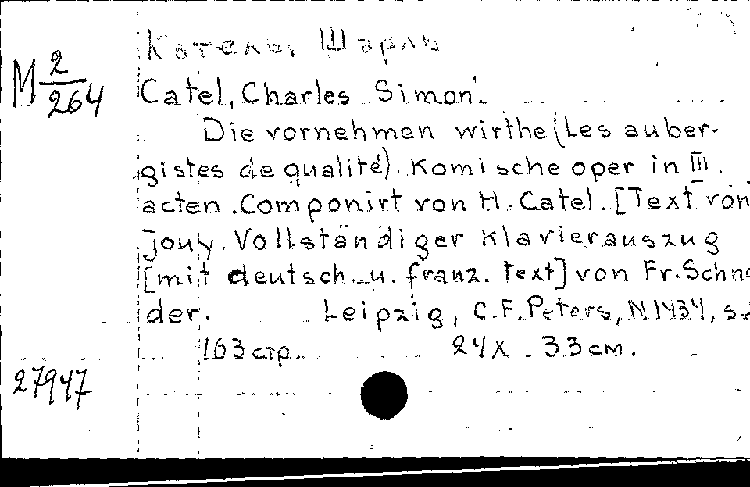 Катель, Шарль
М 2/264
Catel, Charles Simon.
Die vornehmen wirthe (Les auber-
gistes de qualité). Komische oper in III.
acten. Componirt von H. Catel. [Text von
Jouy. Vollständiger Klavierauszug
[mit deutsch. u. franz. Text] von Fr. Schnei
der. Leipzig, C.F. Peters, N 1434, s.
163 стр. 24 x 33 см.
27947